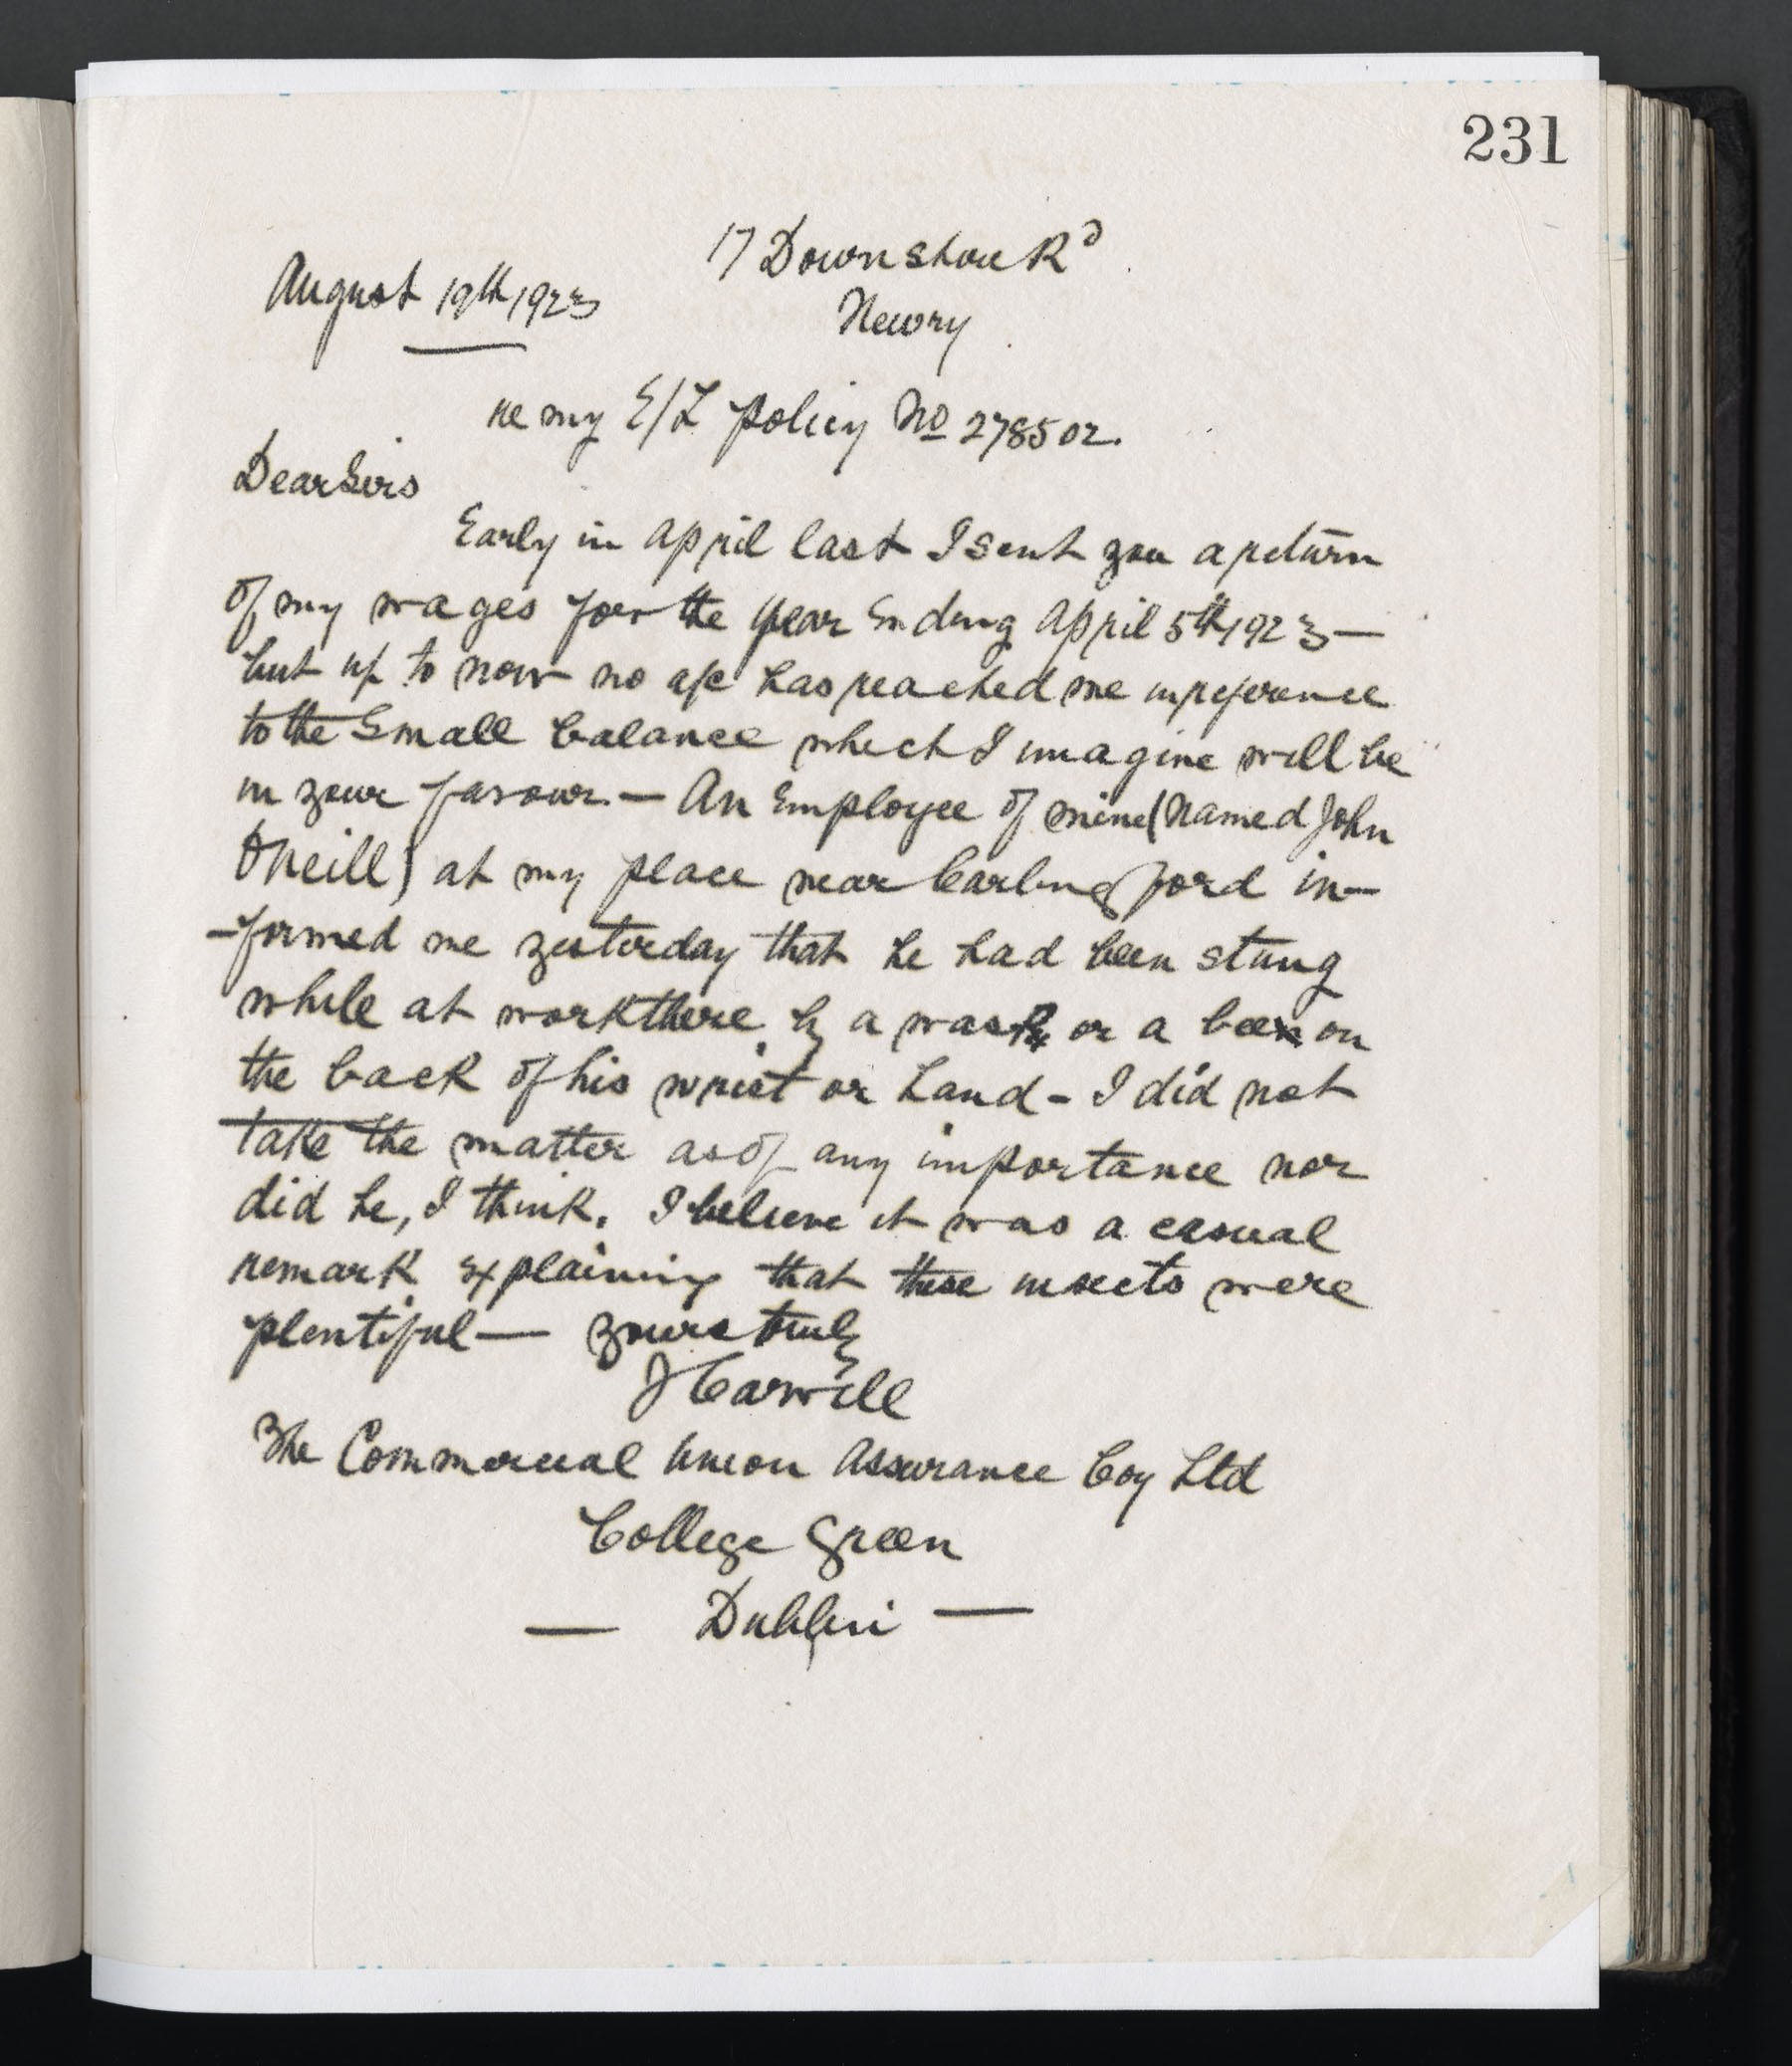 231
17 Downshire Rd
August 19th 1923
Newry
re my E/L policy No 278502.
Dear Sirs
Early in April last I sent you a return
of my wages for the year Ending April 5th 1923 —
but up to now no a/c has reached me in reference
to the Small balance which I imagine will be
in your favour. — An Employee of mine (Named John
O'Neill) at my place near Carlingford in-
-formed me yesterday that he had been stung
while at work there by a wasp or a bee on
the back of his wrist or hand - I did not
take the matter as of any importance nor
did he, I think. I believe it was a casual
remark explaining that these insects were
plentiful — yours truly
J Carvill
The Commercial Union Assurance Coy Ltd
College Green
— Dublin —